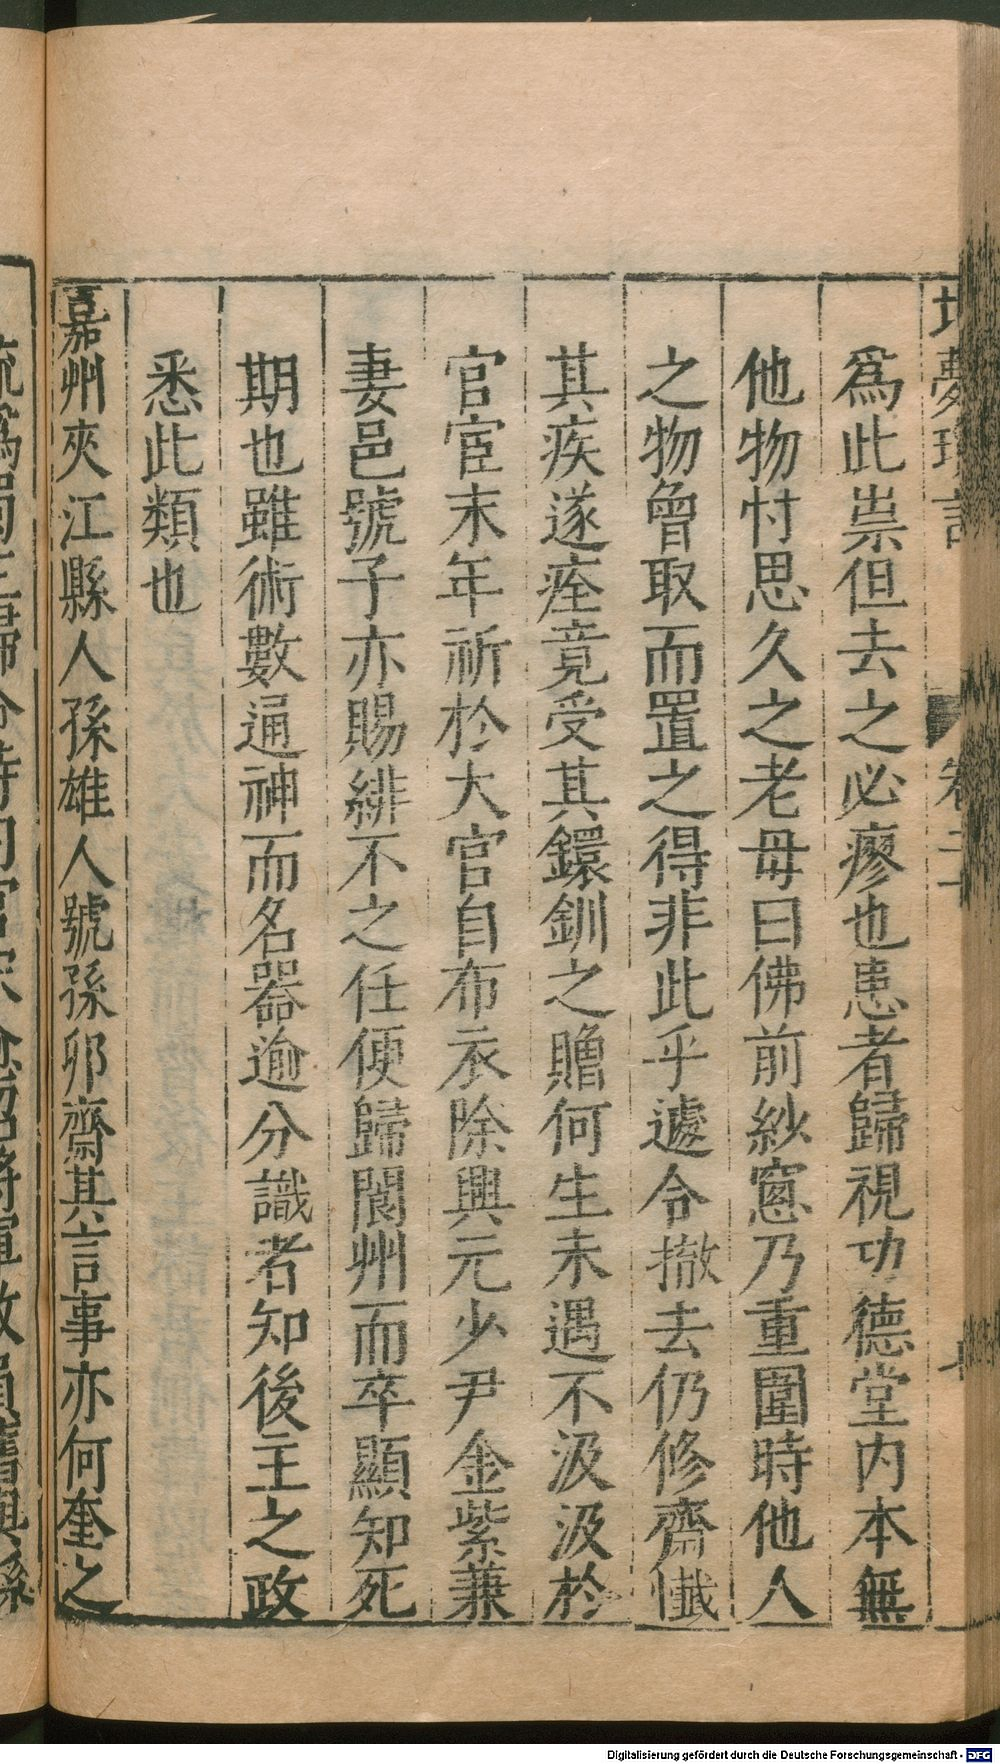 爲此祟但去之必瘳也患者歸視功德堂内本無
他物忖思久之老毋曰佛前紗窻乃重圍時他人
之物曾取而置之得非此乎遽令撤去仍修齋懺
其疾遂痊竟受其鐶釧之贈何生未遇不汲汲於
官宦末年祈於大官自布衣除興元少尹金紫兼
妻邑號子亦賜緋不之任便歸閬州而卒顯知死
期也雖術數通神而名器逾分識者知後主之政
悉此類也
嘉州夾江縣人孫雄人號孫卯齋其言事亦何奎之
Digitalisierung gefördert durch die Deutsche Forschungsgemeinschaft - DFG